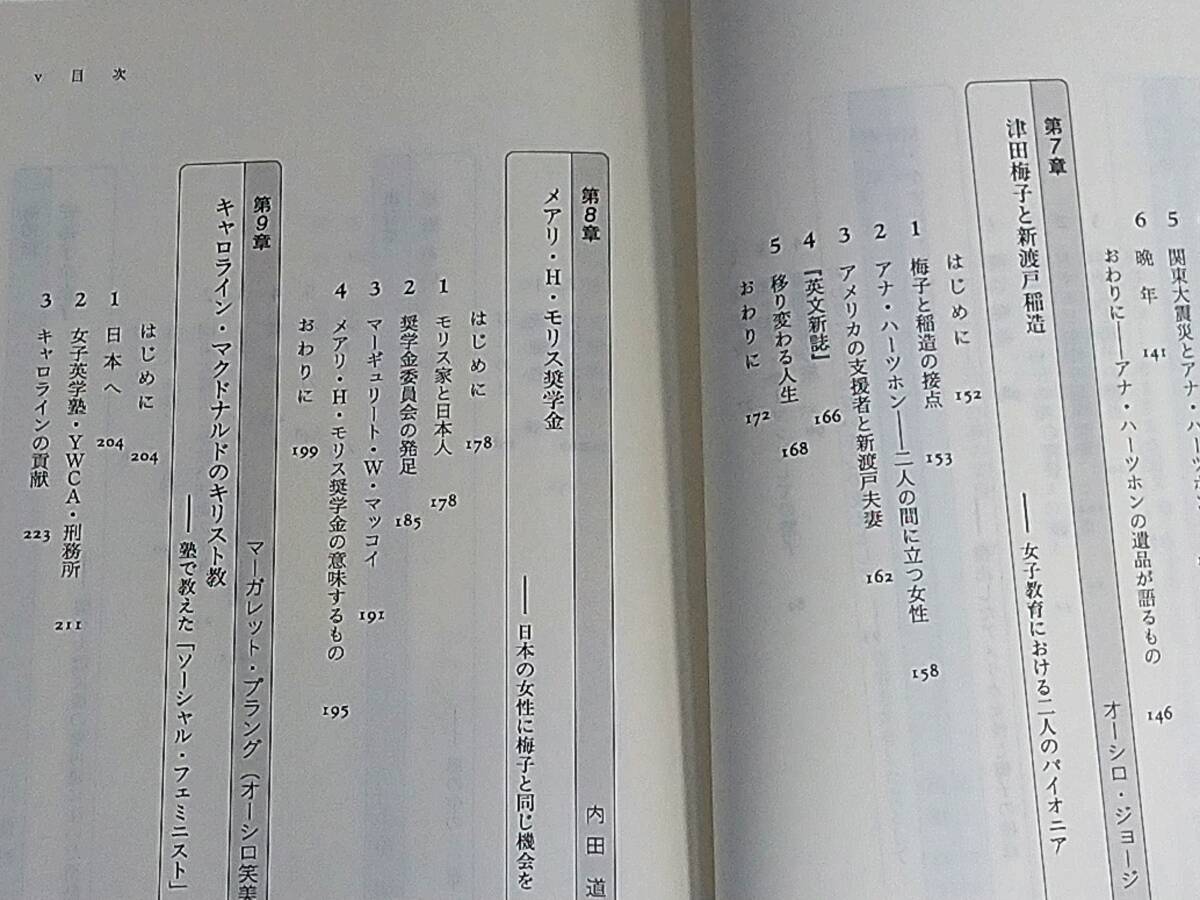 5 関東大震災とアナ・ハーツホン
6 晩年 141
おわりに——アナ・ハーツホンの遺品が語るもの 146
第7章 オーシロ・ジョージ
津田梅子と新渡戸稲造
——女子教育における二人のパイオニア
はじめに 152
1 梅子と稲造の接点 153
2 アナ・ハーツホン——二人の間に立つ女性 158
3 アメリカの支援者と新渡戸夫妻 162
4 『英文新誌』 166
5 移り変わる人生 168
おわりに 172
v 目次
第8章 内田 道
メアリ・H・モリス奨学金
——日本の女性に梅子と同じ機会を
はじめに 178
1 モリス家と日本人 178
2 奨学金委員会の発足 185
3 マーギュリート・W・マッコイ 191
4 メアリ・H・モリス奨学金の意味するもの 195
おわりに 199
第9章 マーガレット・プラング(オーシロ笑美
キャロライン・マクドナルドのキリスト教
——塾で教えた「ソーシャル・フェミニスト」
はじめに 204
1 日本へ 204
2 女子英学塾・YWCA・刑務所 211
3 キャロラインの貢献 223